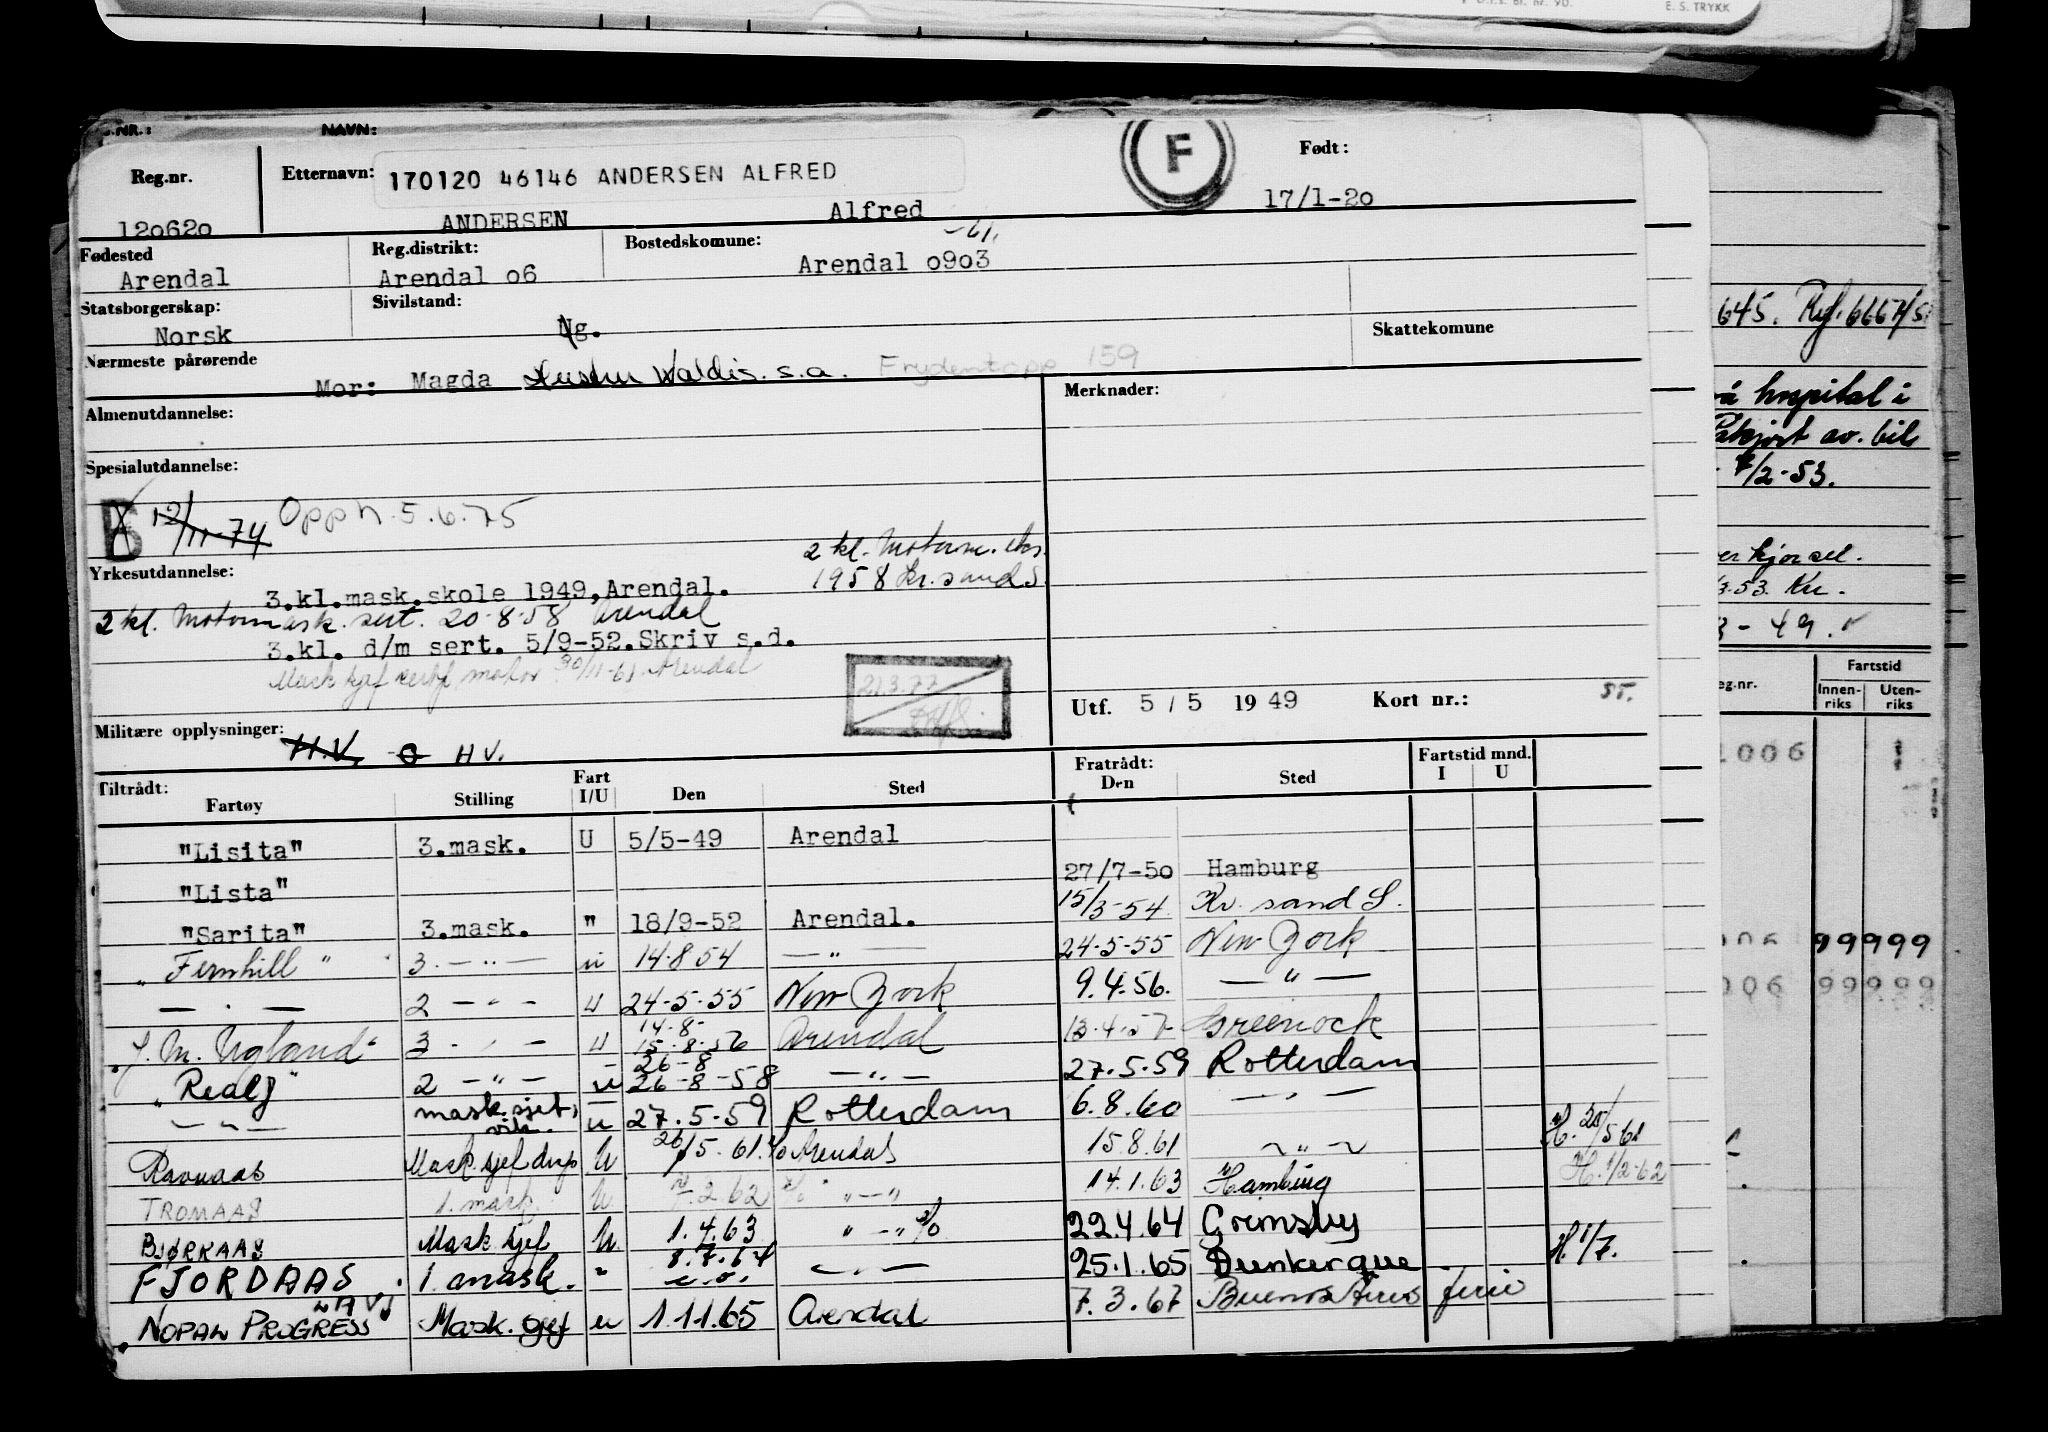 E. S. TRYKK
NAVN:
Reg.nr. Etternavn: 170120 46146 ANDERSEN ALFRED F Født:
120620 ANDERSEN Alfred 17/1-20
Fødested Reg.distrikt: Bostedskomune: -61.
Arendal Arendal 06 Arendal 0903
Statsborgerskap: Sivilstand:
Norsk g. Skattekomune
Nærmeste pårørende Mor: Magda Hustru Valdis. s.a. Frydentopp 159
Almenutdannelse: Merknader:
Spesialutdannelse:
B 12/11-74 Opph. 5.6.75
Yrkesutdannelse: 2 kl. Motorm. eks.
3.kl.mask.skole 1949,Arendal. 1958 Kr.sand S.
2 kl. Motormask. sert. 20-8-58 Arendal
3.kl. d/m sert. 5/9-52.Skriv s.d.
Mask sjef sertf motor 30/11-61 Arendal
21.3.77
Utf. 5 / 5 1949 Kort nr.:
Militære opplysninger: H.V. H V.
Tiltrådt: Fart Fratrådt: Fartstid mnd.
Fartøy Stilling I/U Den Sted Den Sted I U
"Lisita" 3.mask. U 5/5-49 Arendal
"Lista" 27/7-50 Hamburg
"Sarita" 3.mask. " 18/9-52 Arendal. 15/3-54 Kr. sand S.
"Fernhill" 3 - " - u 14.8.54 - " - 24-5-55 New York
- " - 2 - " - u 24-5-55 New York 9.4.56. - " -
14-8-
"J. M. Ugland" 3 - " - u 15-8-56 Arendal 13-4-57 Greenock
26-8
"Realf" 2 - " - u 26-8-58 - " - 27.5.59 Rotterdam
- " - mask.sjef vik. u 27.5-59 Rotterdam 6.8.60 - " -
Ravnaas Mask sjef disp U 26/5.61. Arendal 15.8.61 - " - H. 25/5 61
TROMAAS 1. mask. U 2.62 " - " 14.1.63 Hamburg H. 1/2-62
BJØRKAAS Mask sjef U. 1.4.63 " - " 22.4.64 Grimsby
FJORDAAS 1. mask. " 8.7.64 - " - 25.1.65 Dunkerque H. 1/7.
"NOPAL PROGRESS" Mask. sjef u 1.11.65 Arendal 7.3.67 Buenos Aires ferie
645. Ref. 6667/5
hospital i
Påkjørt av. bil
/2-53.
53. Kr.
- 49.
eg.nr. Fartstid
Innen-riks Uten-riks
006
99999
006 99999